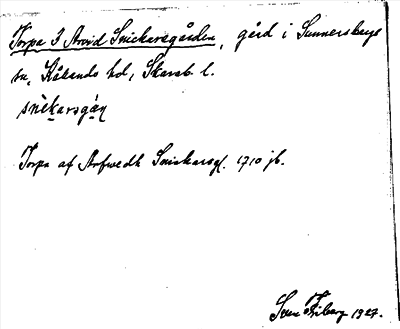 Torpa 3 Arvid Snickarsgården, gård i Sunnersbergs
sn, Kålands hd, Skarab. l.
snèkarsgán
Torpa af Arfwedh Snickarsg. 1710 jb.
Sven Friberg 1927.